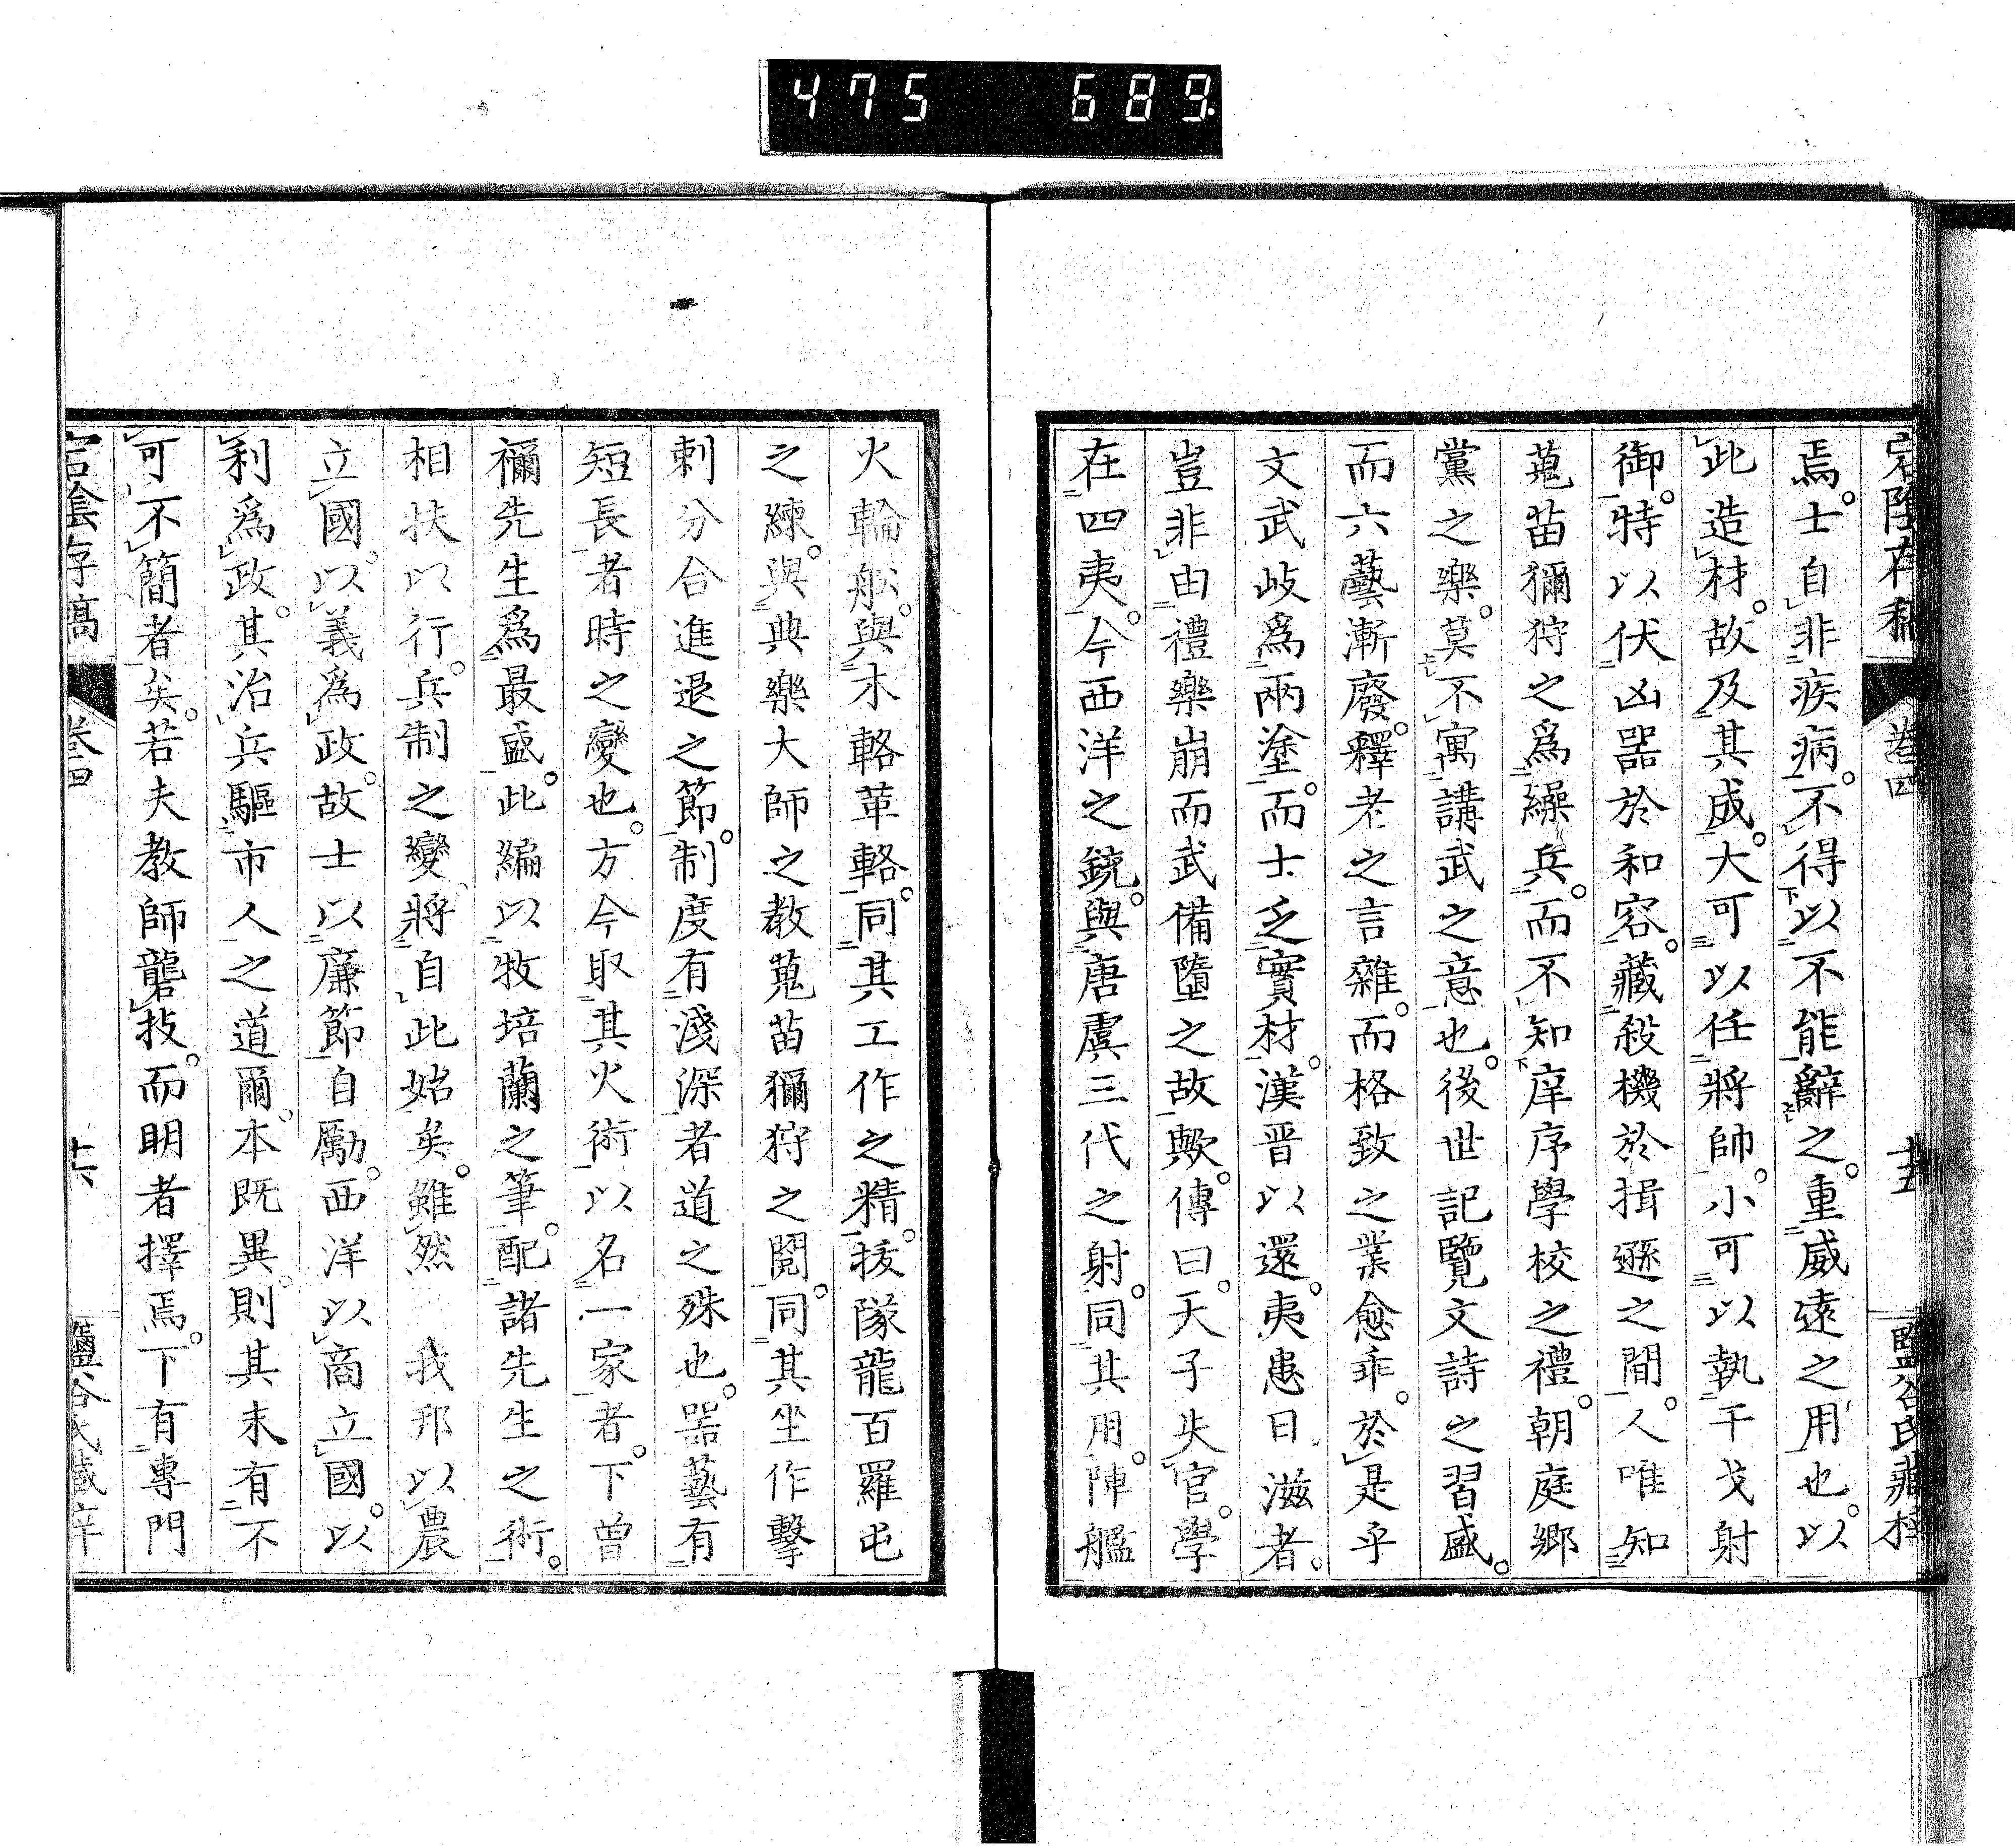 475 689.
宕陰存稿 卷四 十五 鹽谷氏藏梓
焉。士自非疾病。不得以不能辭之。重威遠之用也。以
此造材。故及其成。大可以任將帥。小可以執干戈射
御。特以伏凶器於和容。藏殺機於揖遜之間。人唯知
蒐苗獮狩之爲繰兵。而不知庠序學校之禮。朝庭鄉
黨之樂。莫不寓講武之意也。後世記覽文詩之習盛。
而六藝漸廢。釋老之言雜。而格致之業愈乖。於是乎
文武岐爲兩塗。而士乏實材。漢晋以還。夷患日滋者。
豈非由禮樂崩而武備墮之故歟。傳曰。天子失官。學
在四夷。今西洋之銃。與唐虞三代之射。同其用。陣艦
火輪舩。與木輅革輅。同其工作之精。拔隊龍百羅屯
之練。與典樂大師之教蒐苗獮狩之閲。同其坐作擊
刺分合進退之節。制度有淺深者道之殊也。器藝有
短長者時之變也。方今取其火術以名一家者。下曾
禰先生爲最盛。此編以牧培蘭之筆。配諸先生之術。
相扶以行。兵制之變。將自此始矣。雖然 我邦以農
立國。以義爲政。故士以廉節自勵。西洋以商立國。以
利爲政。其治兵驅市人之道爾。本既異。則其末有不
可不簡者矣。若夫教師礱技。而明者擇焉。下有專門
宕陰存稿 卷四 十六 鹽谷氏藏梓